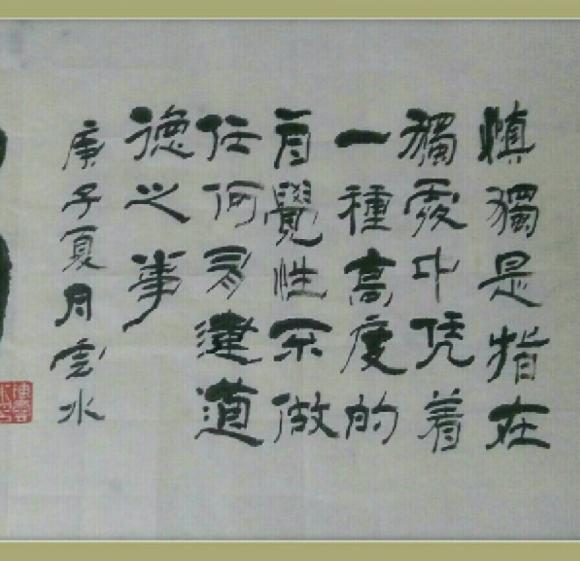 慎獨是指在
獨處中凭着
一種高度的
自覺性不做
任何有違道
德之事
庚子夏月雲水